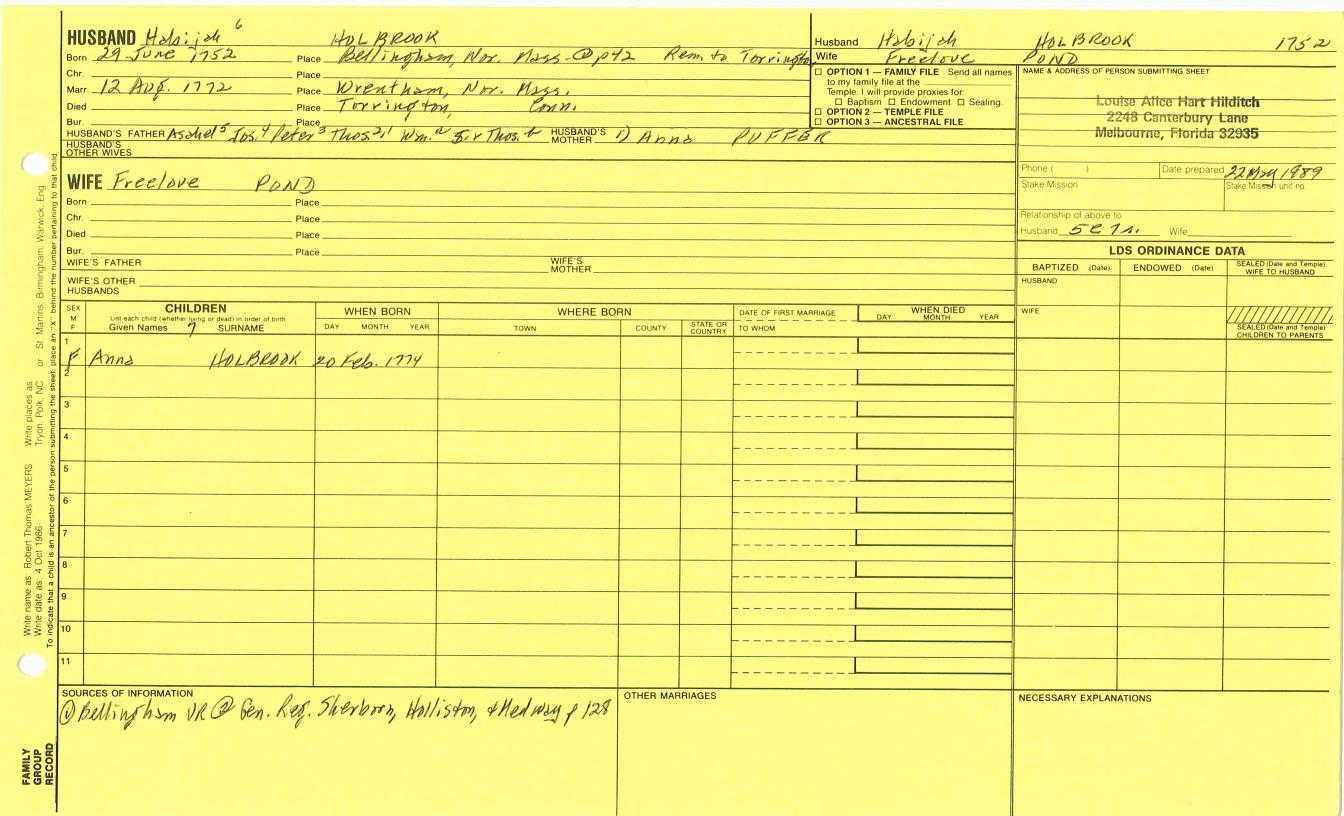 HUSBAND Habijah 6 HOLBROOK
Born 29 June 1752 Place Bellingham, Nor. Mass. @ p42 Rem. to Torrington
Chr. Place
Marr. 12 Aug. 1772 Place Wrentham, Nor. Mass.
Died Place Torrington, Conn.
Bur. Place
HUSBAND'S FATHER Asahel 5 Jos. 4 Peter 3 Thos 2,1 Wm. a Sir Thos. b HUSBAND'S MOTHER 1) Anna PUFFER
HUSBAND'S OTHER WIVES
WIFE Freelove POND
Born Place
Chr. Place
Died Place
Bur. Place
WIFE'S FATHER WIFE'S MOTHER
WIFE'S OTHER HUSBANDS
Husband Habijah HOLBROOK 1752
Wife Freelove POND
☐ OPTION 1 — FAMILY FILE Send all names
to my family file at the
Temple. I will provide proxies for:
☐ Baptism ☐ Endowment ☐ Sealing.
☐ OPTION 2 — TEMPLE FILE
☐ OPTION 3 — ANCESTRAL FILE
NAME & ADDRESS OF PERSON SUBMITTING SHEET
Louise Alice Hart Hilditch
2248 Canterbury Lane
Melbourne, Florida 32935
Phone ( ) Date prepared 22 May 1989
Stake/Mission Stake/Mission unit no.
Relationship of above to
Husband 5C 7r. Wife
LDS ORDINANCE DATA
BAPTIZED (Date) ENDOWED (Date) SEALED (Date and Temple) WIFE TO HUSBAND
HUSBAND
WIFE
SEALED (Date and Temple) CHILDREN TO PARENTS
SEX M F
CHILDREN
List each child (whether living or dead) in order of birth
Given Names 7 SURNAME
WHEN BORN
DAY MONTH YEAR
WHERE BORN
TOWN COUNTY STATE OR COUNTRY
DATE OF FIRST MARRIAGE
TO WHOM
WHEN DIED
DAY MONTH YEAR
1
F Anna HOLBROOK 20 Feb. 1774
2
3
4
5
6
7
8
9
10
11
SOURCES OF INFORMATION
① Bellingham VR @ Gen. Reg. Sherborn, Holliston, & Medway p 128
OTHER MARRIAGES
NECESSARY EXPLANATIONS
Write name as: Robert Thomas MEYERS Write places as: Tryon, Polk, NC or St. Martins, Birmingham, Warwick, Eng.
Write date as: 4 Oct 1986
To indicate that a child is an ancestor of the person submitting the sheet, place an "X" behind the number pertaining to that child.
FAMILY
GROUP
RECORD